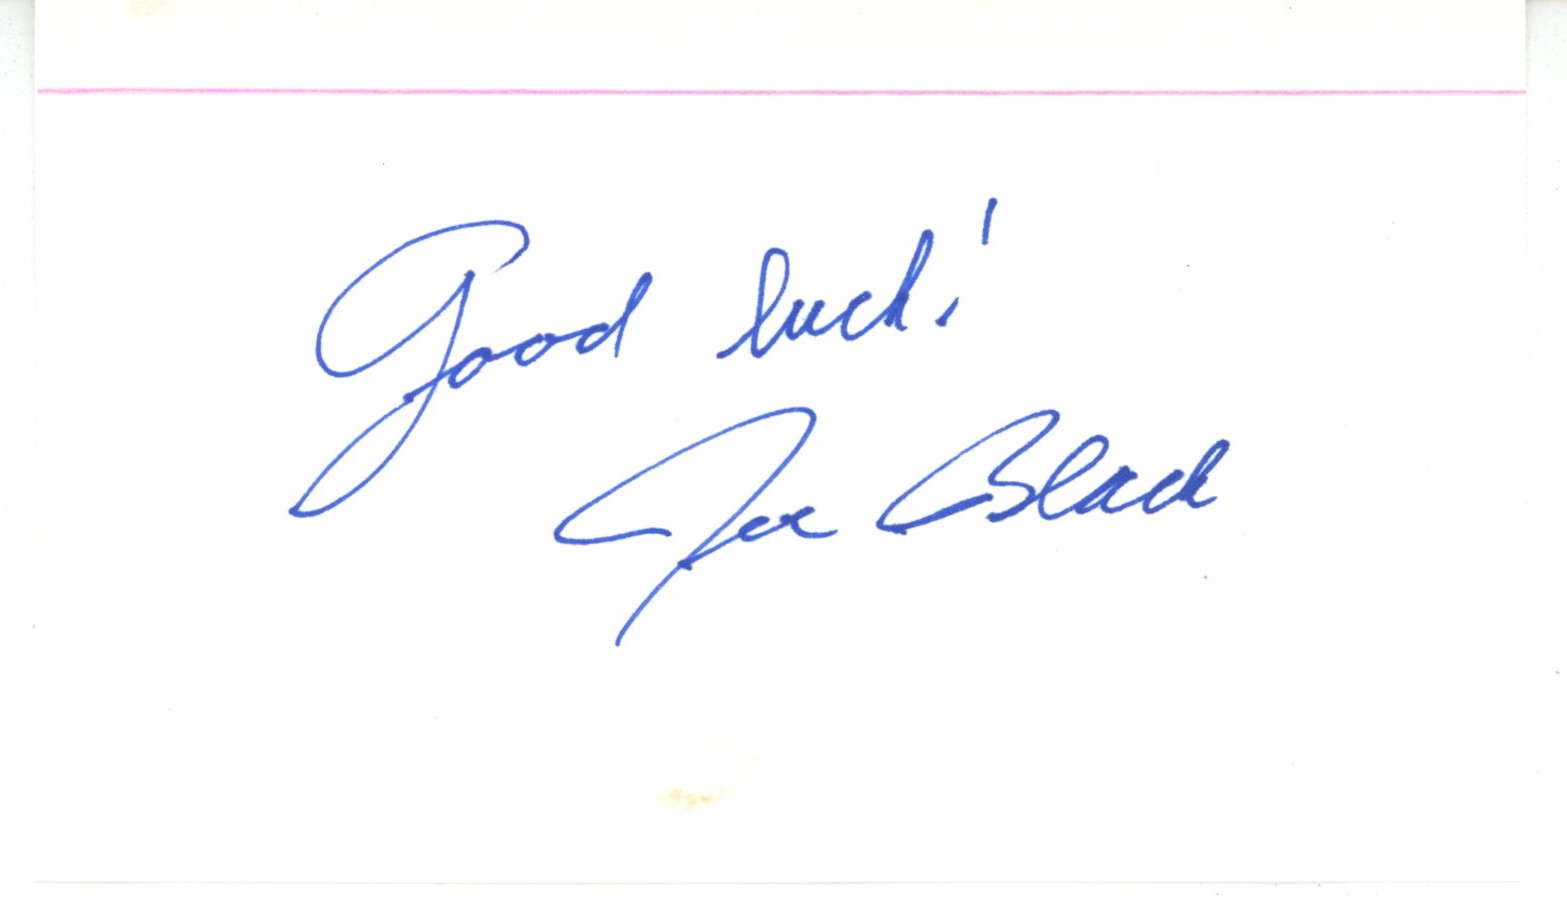 Good luck!
Joe Black